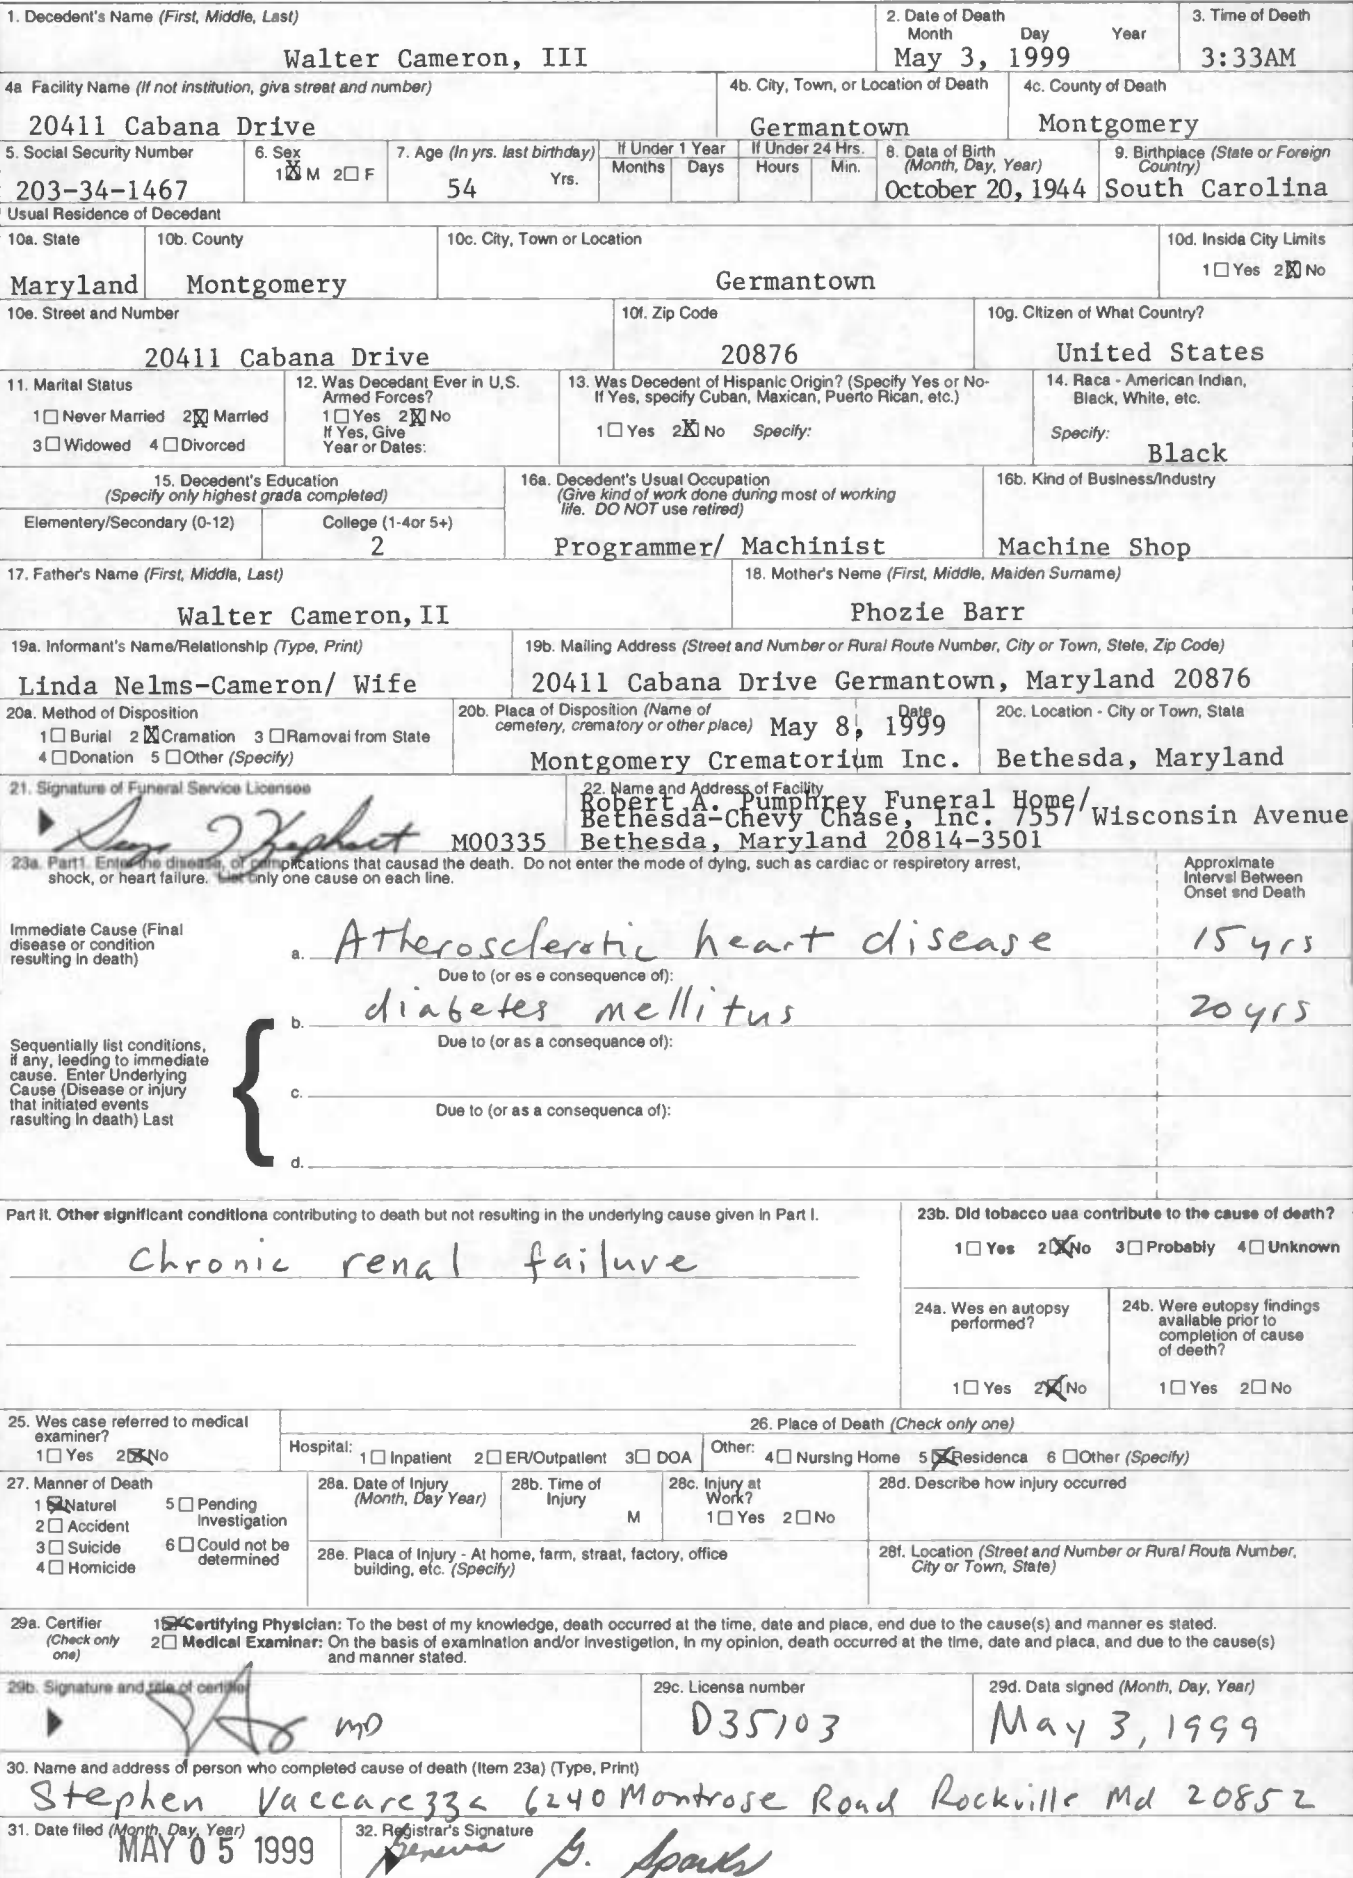 1. Decedent's Name (First, Middle, Last)
Walter Cameron, III
2. Date of Death
Month Day Year
May 3, 1999
3. Time of Deeth
3:33AM
4a Facility Name (If not institution, giva streat and number)
20411 Cabana Drive
4b. City, Town, or Location of Death
Germantown
4c. County of Death
Montgomery
5. Social Security Number
203-34-1467
6. Sex
1☒ M 2☐ F
7. Age (In yrs. last birthday)
54 Yrs.
If Under 1 Year
Months Days
If Under 24 Hrs.
Hours Min.
8. Data of Birth
(Month, Day, Year)
October 20, 1944
9. Birthplace (State or Foreign
Country)
South Carolina
Usual Residence of Decedant
10a. State
Maryland
10b. County
Montgomery
10c. City, Town or Location
Germantown
10d. Insida City Limits
1☐ Yes 2☒ No
10e. Street and Number
20411 Cabana Drive
10f. Zip Code
20876
10g. Citizen of What Country?
United States
11. Marital Status
1☐ Never Married 2☒ Married
3☐ Widowed 4☐ Divorced
12. Was Decedant Ever in U.S.
Armed Forces?
1☐ Yes 2☒ No
If Yes, Give
Year or Dates:
13. Was Decedent of Hispanic Origin? (Specify Yes or No-
If Yes, specify Cuban, Maxican, Puerto Rican, etc.)
1☐ Yes 2☒ No Specify:
14. Raca - American Indian,
Black, White, etc.
Specify:
Black
15. Decedent's Education
(Specify only highest grada completed)
Elementery/Secondary (0-12)
College (1-4or 5+)
2
16a. Decedent's Usual Occupation
(Give kind of work done during most of working
life. DO NOT use retired)
Programmer/ Machinist
16b. Kind of Business/Industry
Machine Shop
17. Father's Name (First, Middla, Last)
Walter Cameron, II
18. Mother's Neme (First, Middle, Maiden Surname)
Phozie Barr
19a. Informant's Name/Relationship (Type, Print)
Linda Nelms-Cameron/ Wife
19b. Mailing Address (Street and Number or Rural Route Number, City or Town, Stete, Zip Code)
20411 Cabana Drive Germantown, Maryland 20876
20a. Method of Disposition
1☐ Burial 2☒ Cramation 3☐ Ramovai from State
4☐ Donation 5☐ Other (Specify)
20b. Placa of Disposition (Name of
cemetery, crematory or other place)
Date
May 8, 1999
Montgomery Crematorium Inc.
20c. Location - City or Town, Stata
Bethesda, Maryland
21. Signature of Funeral Service Licensee
M00335
22. Name and Address of Facility
Robert A. Pumphrey Funeral Home/
Bethesda-Chevy Chase, Inc. 7557 Wisconsin Avenue
Bethesda, Maryland 20814-3501
23a. Part1. Enter the disease, or complications that causad the death. Do not enter the mode of dying, such as cardiac or respiretory arrest,
shock, or heart failure. List only one cause on each line.
Approximate
Intervsl Between
Onset snd Death
Immediate Cause (Final
disease or condition
resulting in death)
a. Atherosclerotic heart disease 15 yrs
Due to (or es e consequence of):
b. diabetes mellitus 20 yrs
Due to (or as a consequance of):
Sequentially list conditions,
if any, leeding to immediate
cause. Enter Underlying
Cause (Disease or injury
that initiated events
rasulting in daath) Last
c.
Due to (or as a consequenca of):
d.
Part II. Other significant conditiona contributing to death but not resulting in the underlying cause given in Part I.
Chronic renal failure
23b. Did tobacco uaa contribute to the cause of death?
1☐ Yes 2☒ No 3☐ Probably 4☐ Unknown
24a. Wes en autopsy
performed?
1☐ Yes 2☒ No
24b. Were eutopsy findings
available prior to
completion of cause
of deeth?
1☐ Yes 2☐ No
25. Wes case referred to medical
examiner?
1☐ Yes 2☒ No
26. Place of Death (Check only one)
Hospital: 1☐ Inpatient 2☐ ER/Outpatlent 3☐ DOA
Other: 4☐ Nursing Home 5☒ Residenca 6☐ Other (Specify)
27. Manner of Death
1☒ Naturel 5☐ Pending
Investigation
2☐ Accident
3☐ Suicide 6☐ Could not be
determined
4☐ Homicide
28a. Date of Injury
(Month, Day Year)
28b. Time of
Injury
M
28c. Injury at
Work?
1☐ Yes 2☐ No
28d. Describe how injury occurred
28e. Placa of Injury - At home, farm, straat, factory, office
building, etc. (Specify)
28f. Location (Street and Number or Rural Routa Number,
City or Town, State)
29a. Certifier
(Check only
one)
1☒ Certifying Physician: To the best of my knowledge, death occurred at the time, date and place, end due to the cause(s) and manner es stated.
2☐ Medical Examinar: On the basis of examination and/or investigetion, in my opinion, death occurred at the time, date and placa, and due to the cause(s)
and manner stated.
29b. Signature and title of certifier
MD
29c. Licensa number
D35103
29d. Data signed (Month, Day, Year)
May 3, 1999
30. Name and address of person who completed cause of death (Item 23a) (Type, Print)
Stephen Vaccarezza 6240 Montrose Road Rockville Md 20852
31. Date filed (Month, Day, Year)
MAY 05 1999
32. Registrar's Signature
Geneva G. Sparks